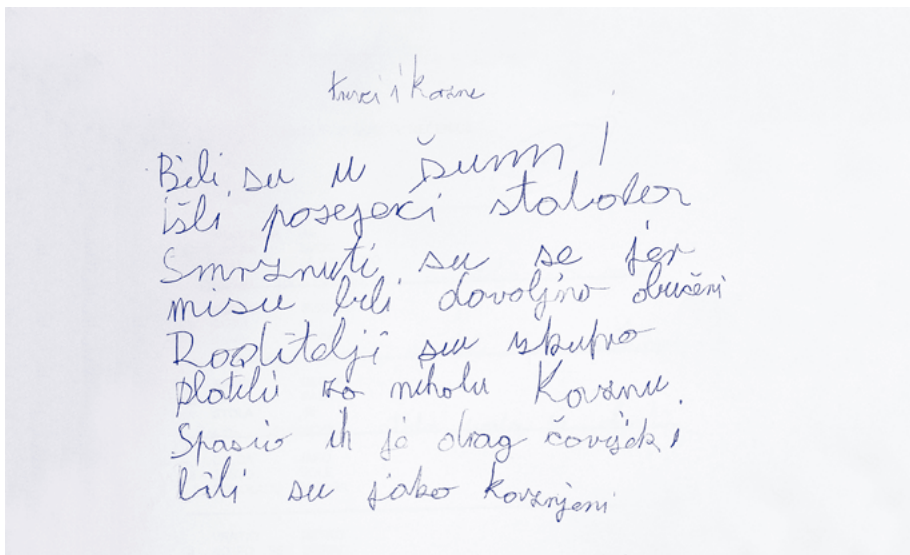 i kazne
Bili su u šumi
išli posejeći stabala
Smrznuti su se jer
nisu bili dovoljno obučeni
Roditelji su skupo
platili za nihovu Kaznu.
Spasio ih je drag čovijek,
bili su jako kaznjeni